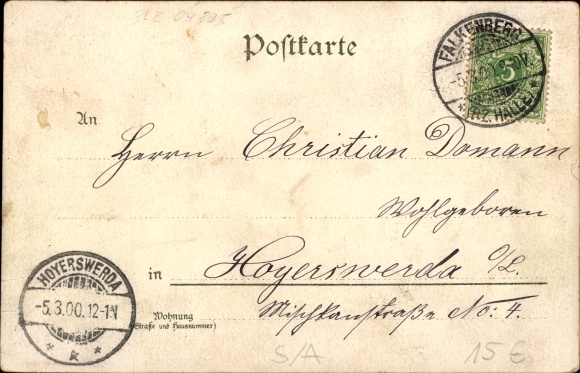 Postkarte
FALKENBERG
-5.3.00.2-3N.
*(BZ. HALLE)*
5
An
Herrn Christian Domann
Wohlgeboren
in Hoyerswerda O/L.
Wohnung
(Straße und Hausnummer)
Mischkanstraße No: 4.
HOYERSWERDA
-5.3.00.12-1N
* k *
S/A
15 €